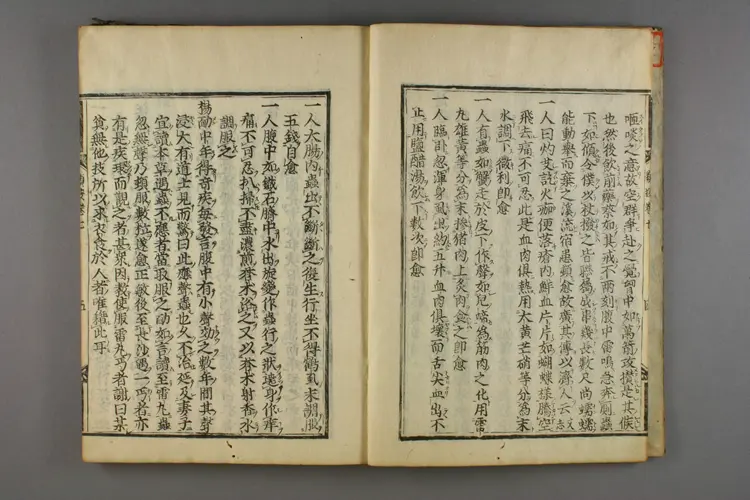 咂啖之意故空群爭赴之覺卿中如萬箭攻攢是其候
也然後飲前藥然如其戒不兩刻腹中雷鳴急奔厠蟲
下如傾令僕以杖撥之皆聯綿成串幾長數尺尚蠕蠕
能動舉而棄之溪流宿患頓愈故廣其傳以濟人云
一人曰灼艾訖火痂便落瘡內鮮血片片如蝴蝶樣騰空
飛去痛不可忍此是血肉俱熱用大黃芒硝等分為末
水調下微利即愈
一人有蟲如蟹走於皮下作聲如兒啼為筋肉之化用雷
丸雄黃等分為末摻猪肉上炙肉食之即愈
一人臨臥忽渾身虱出約五升血肉俱壞而舌尖血出不
止用鹽醋湯飲下數次即愈
一人大腸內蟲出不斷斷之復生行坐不得鶴虱末調服
五錢自愈
一人腹中如鐵石臍中水出旋變作蟲行之狀遶身作痒
痛不可忍扒掃不盡濃煎蒼朮浴之又以蒼朮射香水
調服之
楊勔中年得奇疾每發言腹中有小聲効之數年間其聲
浸大有道士見而驚曰此應聲蟲也久不治延及妻子
宜讀本草遇蟲不應者當取服之勔如言讀至雷丸蟲
忽無聲乃頓服數粒遂愈正敏後至長沙遇一丐者亦
有是疾環而觀之者甚衆因教使服雷丸丐者謝曰某
貧無他技所以求衣食於人者唯藉此耳